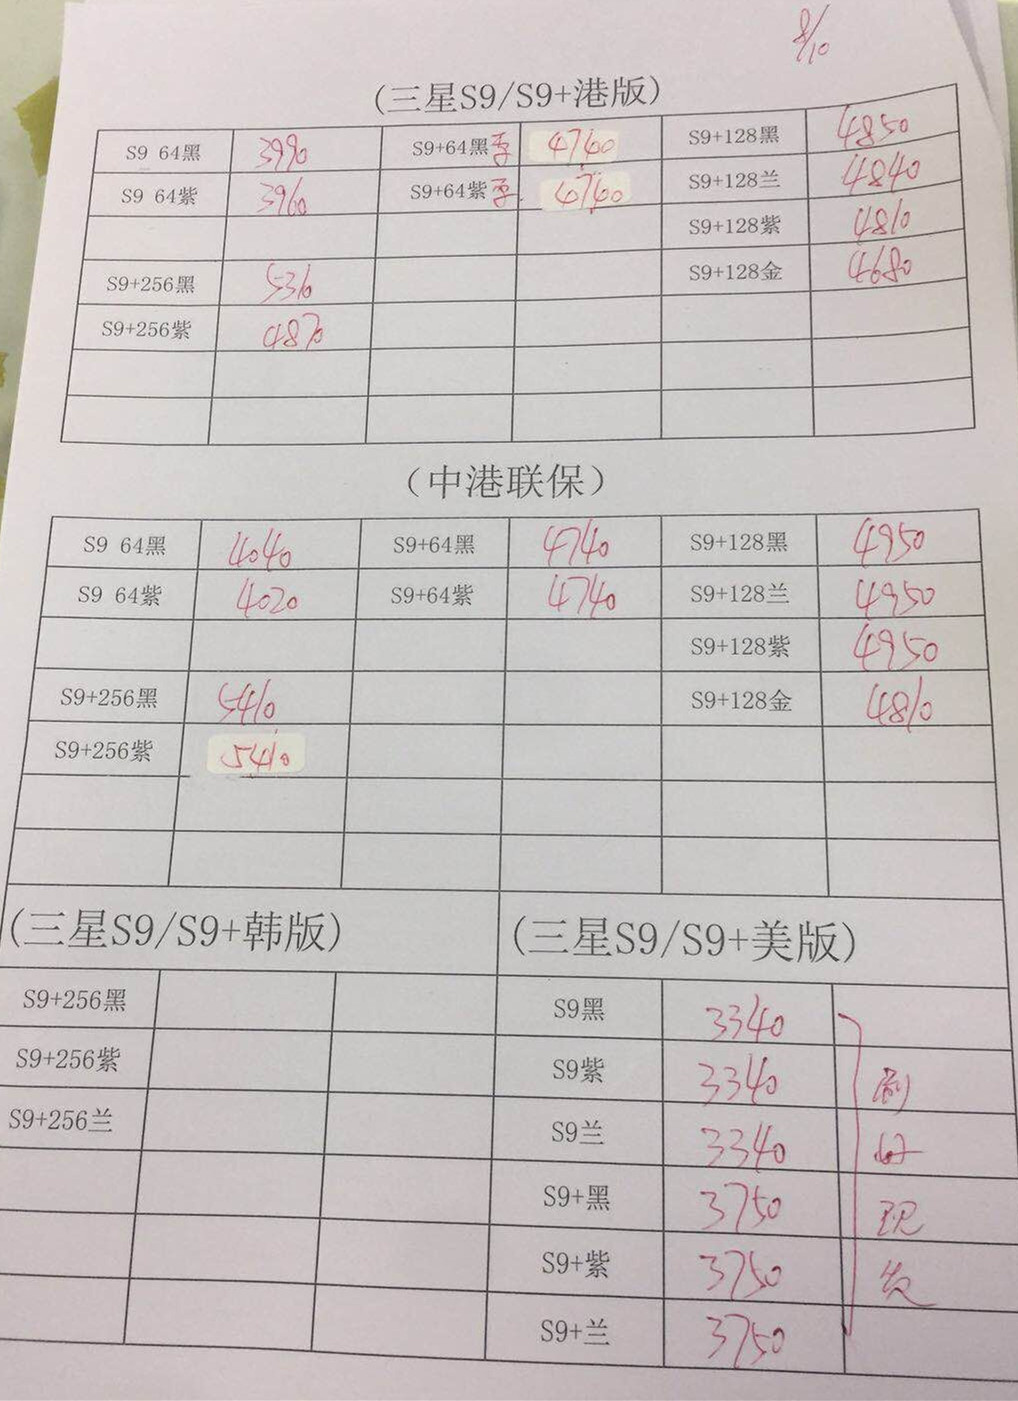 8/10
(三星S9/S9+港版)
S9 64黑 3990 S9+64黑 4760 S9+128黑 4850
S9 64紫 3960 S9+64紫 4760 S9+128兰 4840
S9+128紫 4810
S9+256黑 5310 S9+128金 4680
S9+256紫 4870
(中港联保)
S9 64黑 4040 S9+64黑 4740 S9+128黑 4950
S9 64紫 4020 S9+64紫 4740 S9+128兰 4950
S9+128紫 4950
S9+256黑 5410 S9+128金 4810
S9+256紫 5410
(三星S9/S9+韩版) (三星S9/S9+美版)
S9+256黑 S9黑 3340
S9+256紫 S9紫 3340 刷
S9+256兰 S9兰 3340 好
S9+黑 3750 现
S9+紫 3750 发
S9+兰 3750